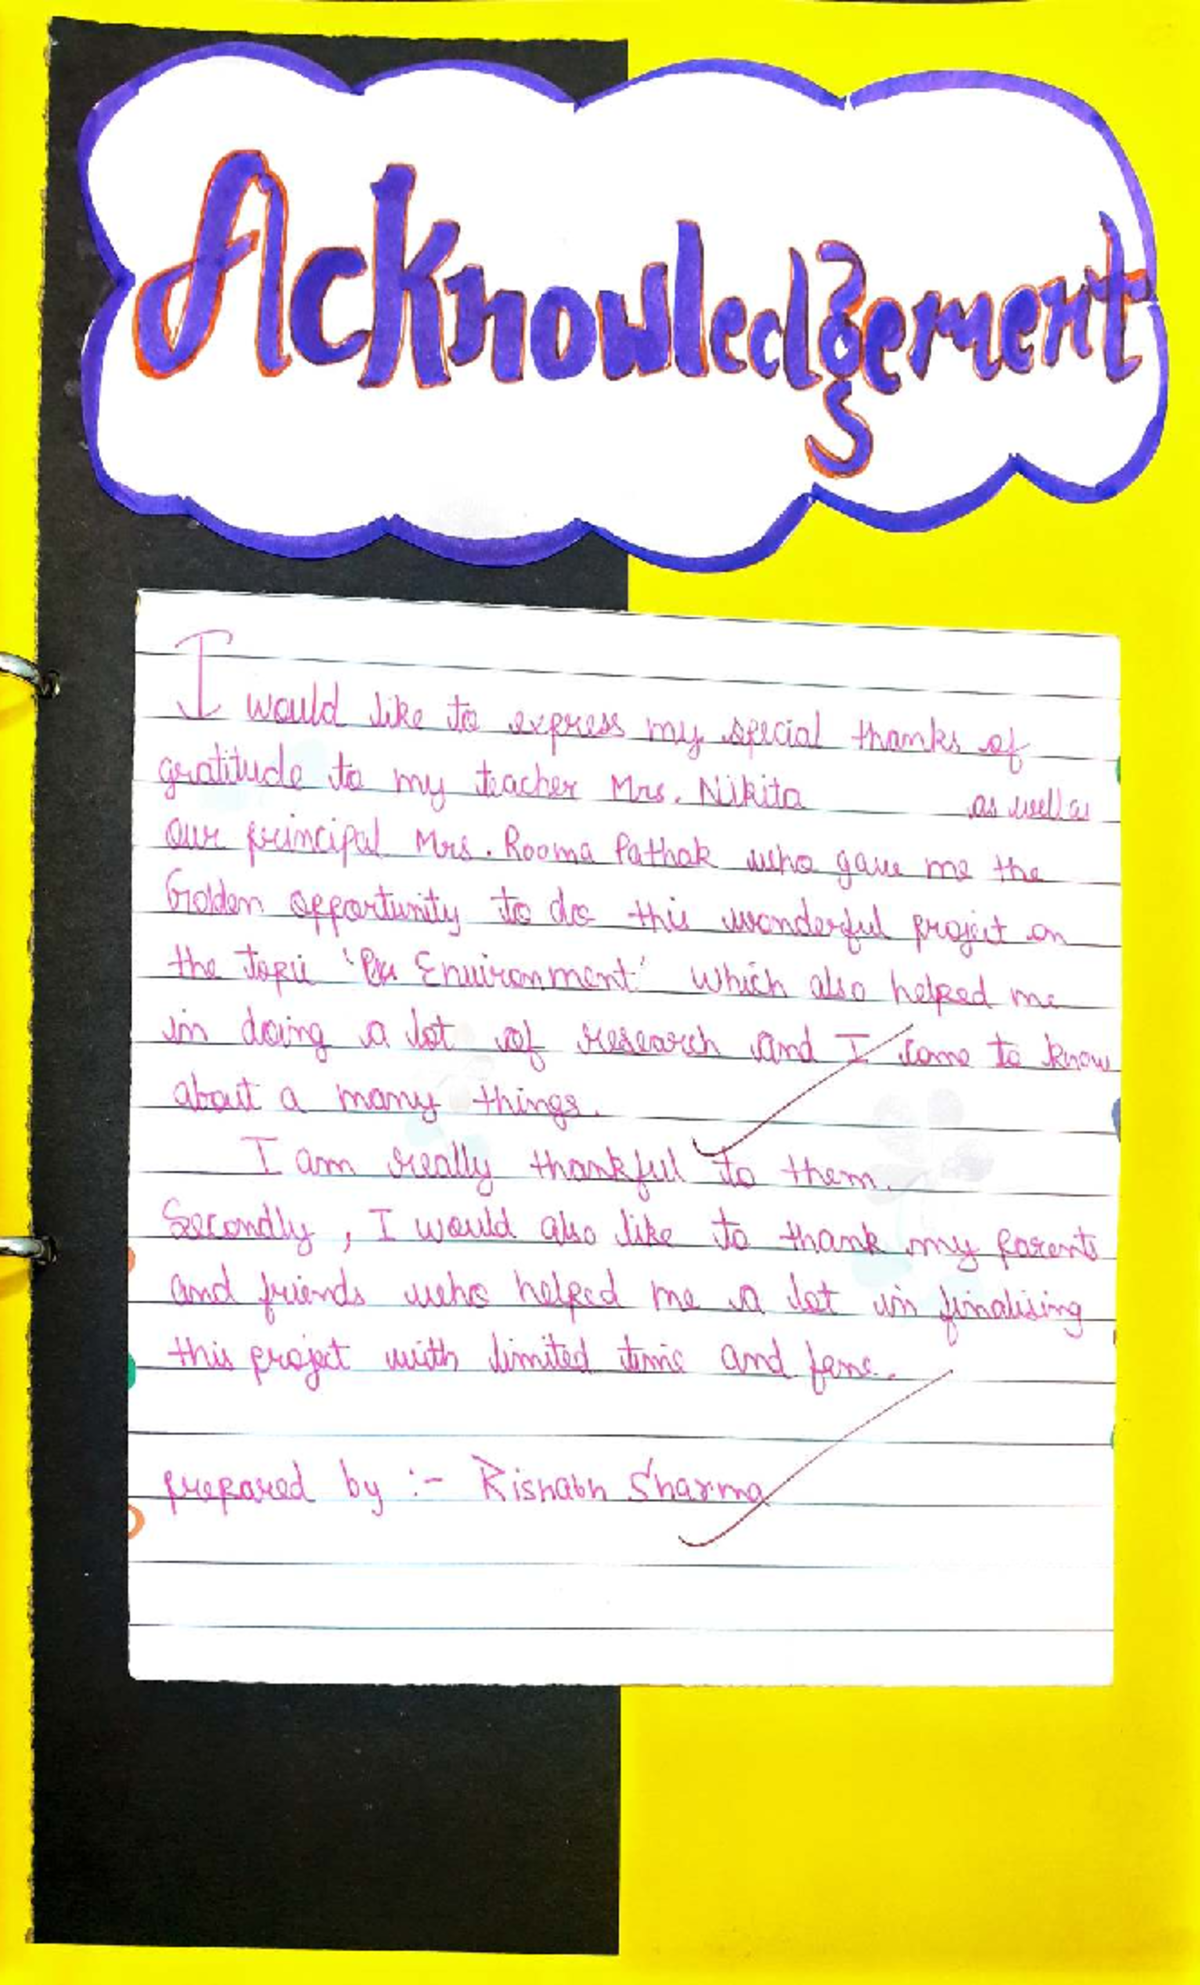 Acknowledgement
I would like to express my special thanks of
gratitude to my teacher Mrs. Nikita as well as
our principal Mrs. Rooma Pathak who gave me the
Golden opportunity to do this wonderful project on
the topic ' Environment' which also helped me
in doing a lot of research and I came to know
about a many things.
I am really thankful to them.
Secondly, I would also like to thank my parents
and friends who helped me a lot in finalising
this project with limited time and
prepared by :- Rishabh Sharma